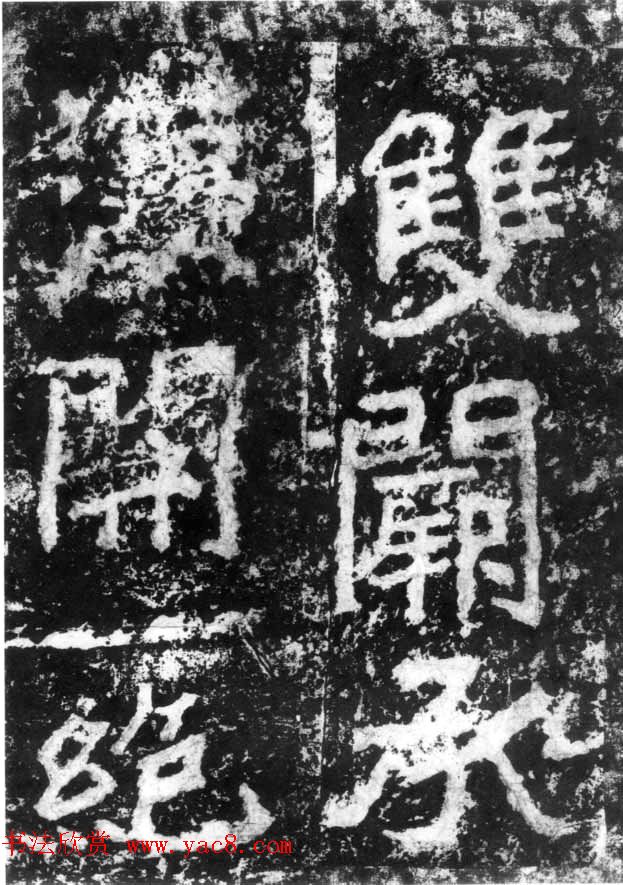 雙闕承
漢開絕
书法欣赏 www.yac8.com